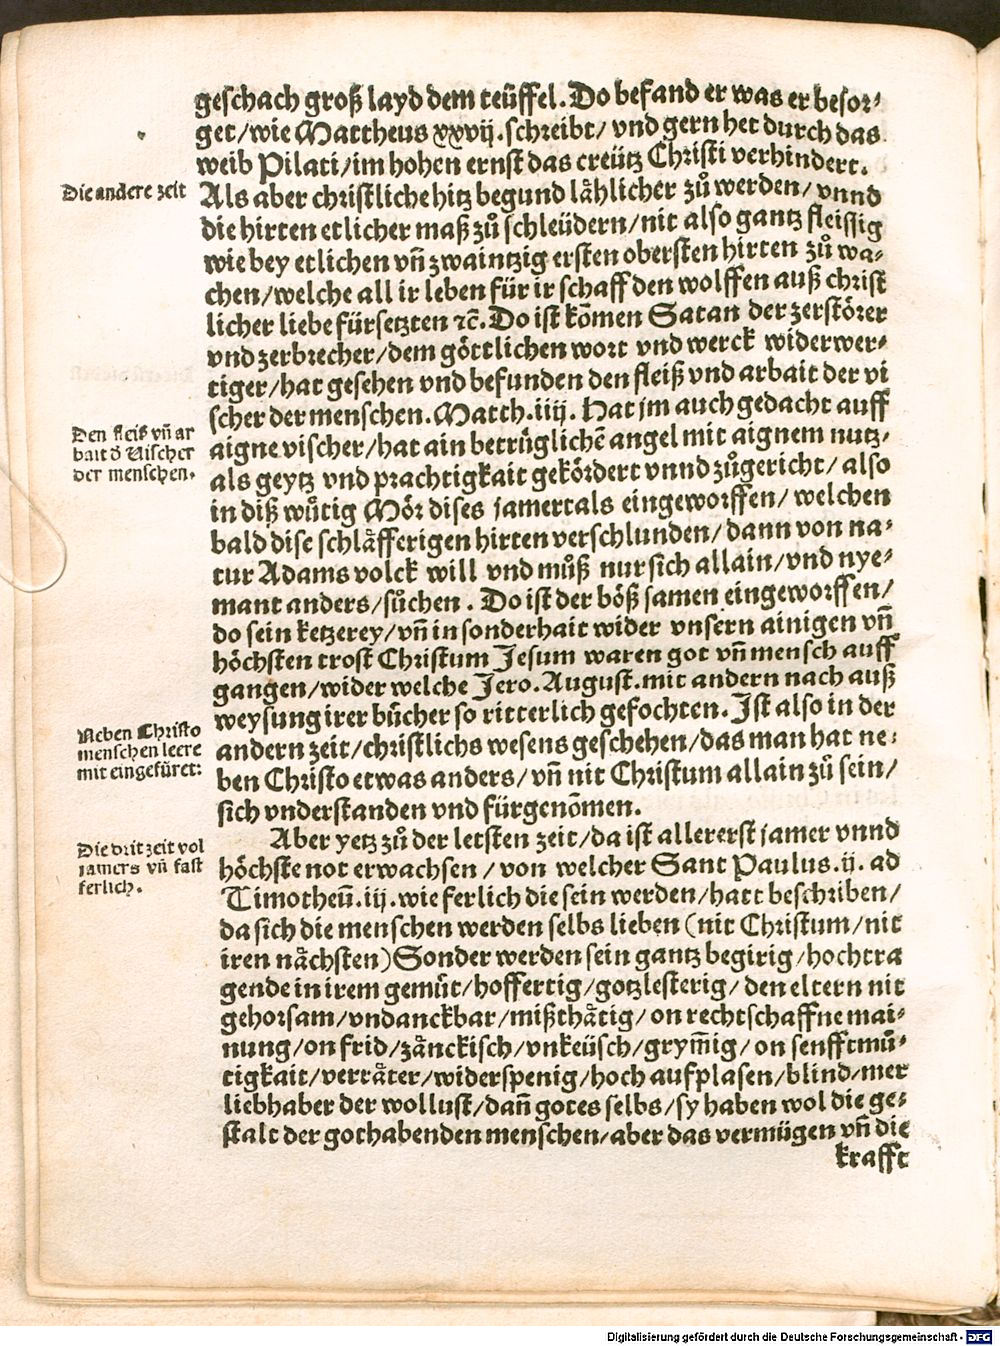 geschach groß layd dem teüffel. Do befand er was er besor⸗
get/wie Mattheus xxvij. schreibt/ vnd gern het durch das
weib Pilati/im hohen ernst das creütz Christi verhindert.
Die andere zeit
Als aber christliche hitz begund låhlicher zů werden/ vnnd
die hirten etlicher maß zů schleüdern/nit also gantz fleissig
wie bey etlichen vñ zwaintzig ersten obersten hirten zů wa⸗
chen/welche all ir leben für ir schaff den wolffen auß christ
licher liebe fürsetzten ꝛc̃. Do ist kõmen Satan der zerstörer
vnd zerbrecher/dem göttlichen wort vnd werck widerwer⸗
tiger/hat gesehen vnd befunden den fleiß vnd arbait der vi
scher der menschen. Matth. iiij. Hat jm auch gedacht auff
Den fleis vñ ar
bait õ Vischer
der menschen.
aigne vischer/hat ain betrüglichẽ angel mit aignem nutz⸗
als geytz vnd prachtigkait gekördert vnnd zůgericht/ also
in diß wůtig Mör dises jamertals eingeworffen/ welchen
bald dise schlåfferigen hirten verschlunden/dann von na⸗
tur Adams volck will vnd můß nur sich allain/vnd nye⸗
mant anders/sůchen. Do ist der böß samen eingeworffen/
do sein ketzerey/vñ in sonderhait wider vnsern ainigen vñ
höchsten trost Christum Jesum waren got vñ mensch auff
gangen/wider welche Jero. August. mit andern nach auß
weysung irer bücher so ritterlich gefochten. Ist also in der
Neben Christo
menschen leere
mit eingefüret:
andern zeit/christlichs wesens geschehen/das man hat ne⸗
ben Christo etwas anders/ vñ nit Christum allain zů sein/
sich vnderstanden vnd fürgenõmen.
Aber yetz zů der letsten zeit/da ist allererst jamer vnnd
Die drit zeit vol
jamers vñ fast
ferlich.
höchste not erwachsen/ von welcher Sant Paulus. ij. ad
Timotheũ. iij. wie ferlich die sein werden/hatt beschriben/
da sich die menschen werden selbs lieben (nit Christum/nit
iren nåchsten) Sonder werden sein gantz begirig/hochtra
gende in irem gemüt/hoffertig/gotzlesterig/ den eltern nit
gehorsam/vndanckbar/mißthåtig/on rechtschaffne mai⸗
nung/on frid/zånckisch/vnkeüsch/grym̃ig/on senfftmů⸗
tigkait/verråter/widerspenig/hoch aufplasen/blind/mer
liebhaber der wollust/dañ gotes selbs/sy haben wol die ge⸗
stalt der gothabenden menschen/aber das vermügen vñ die
krafft
Digitalisierung gefördert durch die Deutsche Forschungsgemeinschaft - DFG